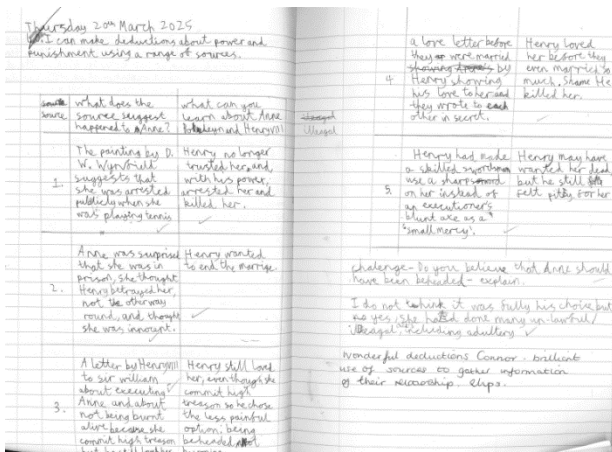 Thursday 20th March 2025
I can make deductions about power and
punishment using a range of sources.
source
what does the
source suggest
happened to Anne?
what can you
learn about Anne
Boleyn and Henry VIII
1.
The painting by D.
W. Wynfield
suggests that
she was arrested
publicly when she
was playing tennis
Henry no longer
trusted her, and
with his power,
arrested her and
killed her.
2.
Anne was surprised
that she was in
prison, she thought
Henry betrayed her,
not the other way
round, and thought
she was innocent.
Henry wanted
to end the marrige
3.
A letter by Henry VIII
to sir william
about executing
Anne and about
not being burnt
alive because she
commit high treason
Henry still loved
her, even though she
commit high
treason so he chose
the less painful
option, being
beheaded not
4
a love letter before
they were married
by
Henry showing
his love to her and
they wrote to each
other in secret.
Henry loved
her before they
even married so
much. Shame He
killed her.
illeagal
5.
Henry had made
a skilled swordsman
use a sharp sword
on her instead of
an executioner's
blunt axe as a
'small mercy'.
Henry may have
wanted her dead
but he still
felt pitty for her
challenge - Do you believe that Anne should
have been beheaded - explain.
I do not think it was fully his choice but
yes, she had done many un-lawful/
illeagal, including adultery
Wonderful deductions Connor. brilliant
use of sources to gather information
of their relationship.